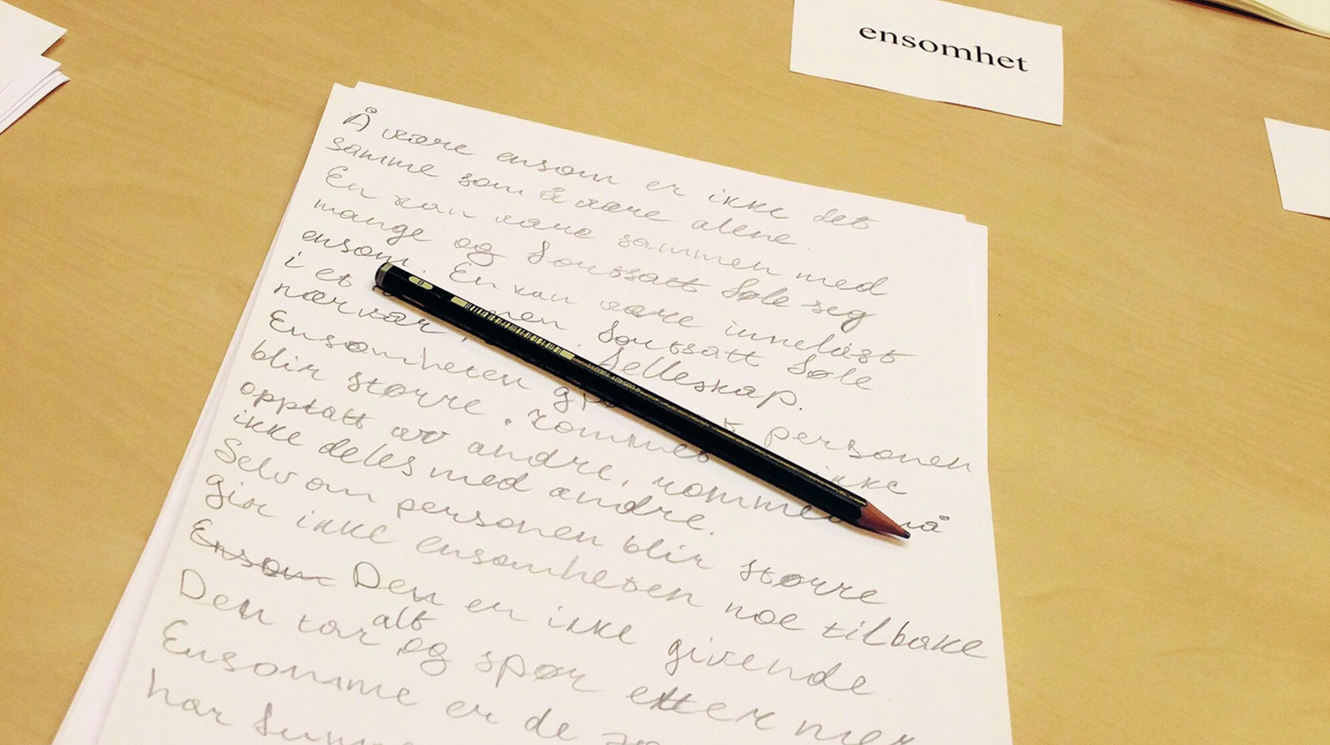 ensomhet
Å være ensom er ikke det
samme som å være alene.
En kan være sammen med
mange og fortsatt føle seg
ensom. En kan være innelåst
i et men fortsatt føle
nærvær, fellesskap.
Ensomheten personen
blir større. rommet ikke
opptatt av andre, rommet må
ikke deles med andre.
Selv om personen blir større
gir ikke ensomheten noe tilbake
Ensom Den er ikke givende
Den tar alt og spør etter mer
Ensomme er de
har